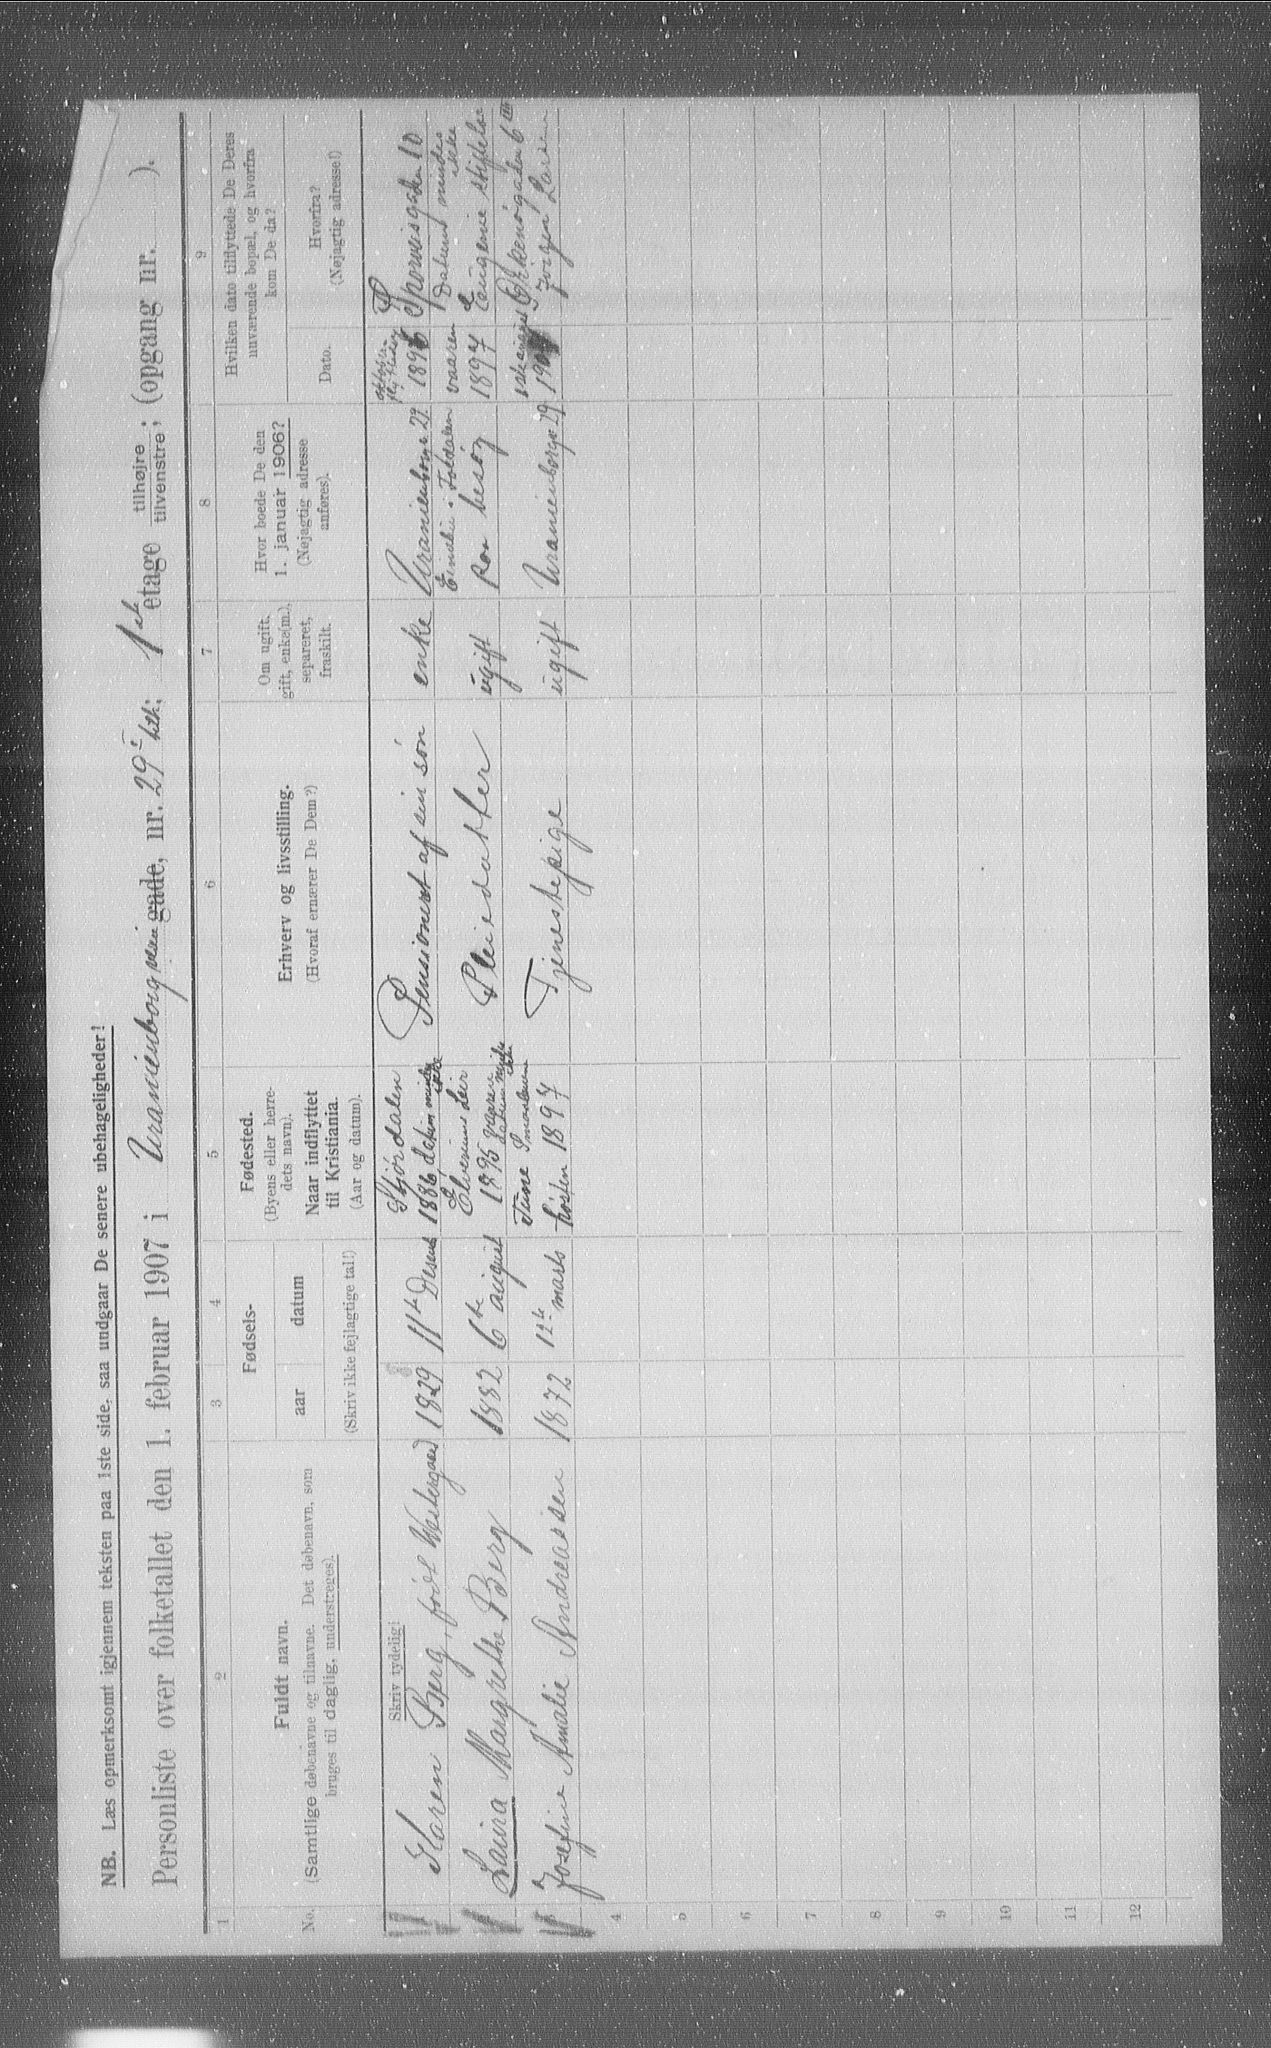 NB. Læs opmerksomt igjennem teksten paa 1ste side, saa undgaar De senere ubehageligheder!
Personliste over folketallet den 1. februar 1907 i Uranienborgveien gade, nr. 29; 1ste etage tilhøjre tilvenstre; (opgang nr. ).
1 2 3 4 5 6 7 8 9
No.
Fuldt navn.
(Samtlige døbenavne og tilnavne. Det døbenavn, som
bruges til daglig, understreges).
Skriv tydelig!
Fødsels-
aar datum
(Skriv ikke fejlagtige tal!)
Fødested.
(Byens eller herre-
dets navn).
Naar indflyttet
til Kristiania.
(Aar og datum).
Erhverv og livsstilling.
(Hvoraf ernærer De Dem?)
Om ugift,
gift, enke(m.),
separeret,
fraskilt.
Hvor boede De den
1. januar 1906?
(Nøjagtig adresse
anføres).
Hvilken dato tilflyttede De Deres
nuværende bopæl, og hvorfra
kom De da?
Dato.
Hvorfra?
(Nøjagtig adresse!)
Karen Berg, født Westergaard 1829 11te Desemb Stjørdalen 1886, datum mindes ikke Pensioneret af sin søn enke Uranienborgv 29 1896 Sporveisgaden 10 Datum mindes ikke
Laura Margrethe Berg 1882 6te august 1895 vaaren datum Pleiedatter ugift paa besøg vaaren 1897 Eugenie stiftelse
Josefine Amalie Andreassen 1872 12te marts Tune Smaalenene høsten 1897 Tjenestepige ugift Uranienborgv 29 Jørgen Larsen
3
4
5
6
7
8
9
10
11
12